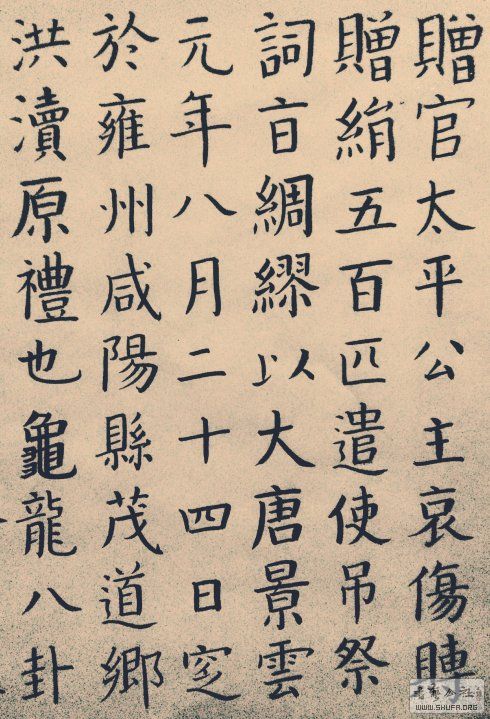 贈官太平公主哀傷賻
贈絹五百匹遣使吊祭
詞旨綢繆以大唐景雲
元年八月二十四日窆
於雍州咸陽縣茂道鄉
洪瀆原禮也龜龍八卦
WWW.SHUFA.ORG